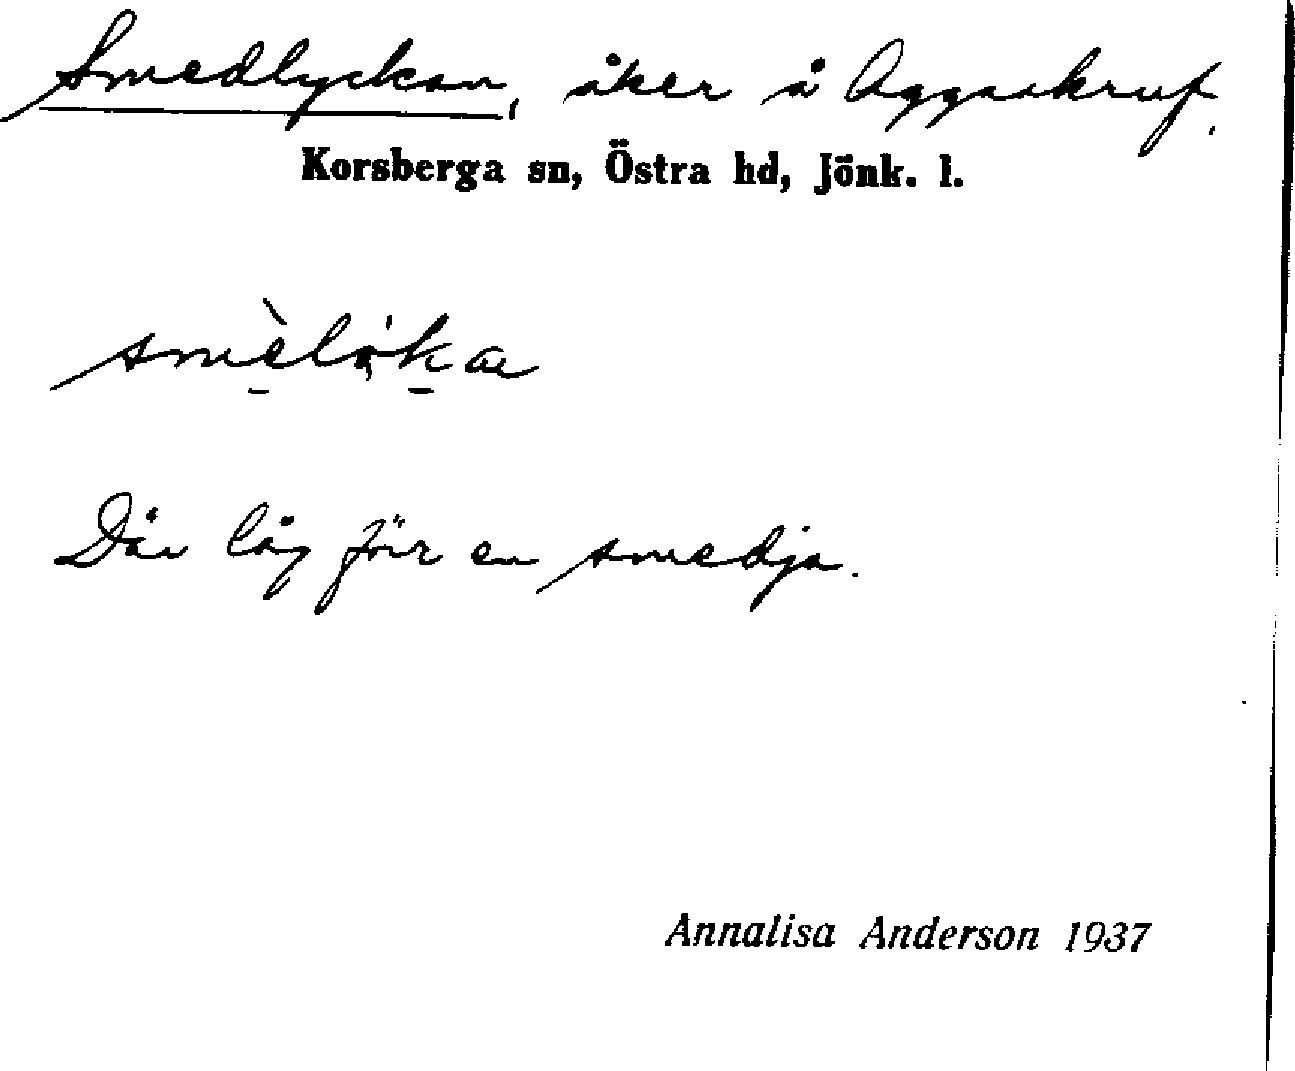 Smedlyckan, åker å Aggaskruf.
Korsberga sn, Östra hd, Jönk. l.
Där låg förr en smedja.
Annalisa Anderson 1937